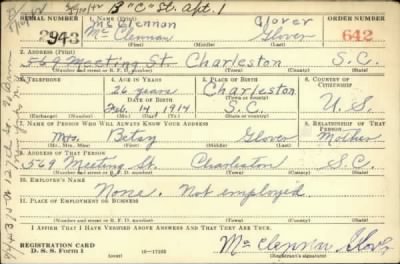 5/20/42 B "C" St. Apt. 1
SERIAL NUMBER 1. NAME (Print) ORDER NUMBER
McClennon Glover
2943 Mc Clennan Glover 642
(First) (Middle) (Last)
2. ADDRESS (Print)
569 Meeting St. Charleston S.C.
(Number and street or R. F. D. number) (Town) (County) (State)
3. TELEPHONE 4. AGE IN YEARS 5. PLACE OF BIRTH 6. COUNTRY OF CITIZENSHIP
26 years Charleston
DATE OF BIRTH
Feb. 14, 1914 S.C. U.S.
(Exchange) (Number) (Mo.) (Day) (Yr.) (State or country)
7. NAME OF PERSON WHO WILL ALWAYS KNOW YOUR ADDRESS 8. RELATIONSHIP OF THAT PERSON
Mrs. Betsy Glover Mother
(Mr., Mrs., Miss) (First) (Middle) (Last)
9. ADDRESS OF THAT PERSON
569 Meeting St. Charleston S.C.
(Number and street or R. F. D. number) (Town) (County) (State)
10. EMPLOYER'S NAME
None. Not employed.
11. PLACE OF EMPLOYMENT OR BUSINESS
(Number and street or R. F. D. number) (Town) (County) (State)
I AFFIRM THAT I HAVE VERIFIED ABOVE ANSWERS AND THAT THEY ARE TRUE.
REGISTRATION CARD
D. S. S. FORM 1 16—17105 Mc Clennon Glover
(Registrant's signature)